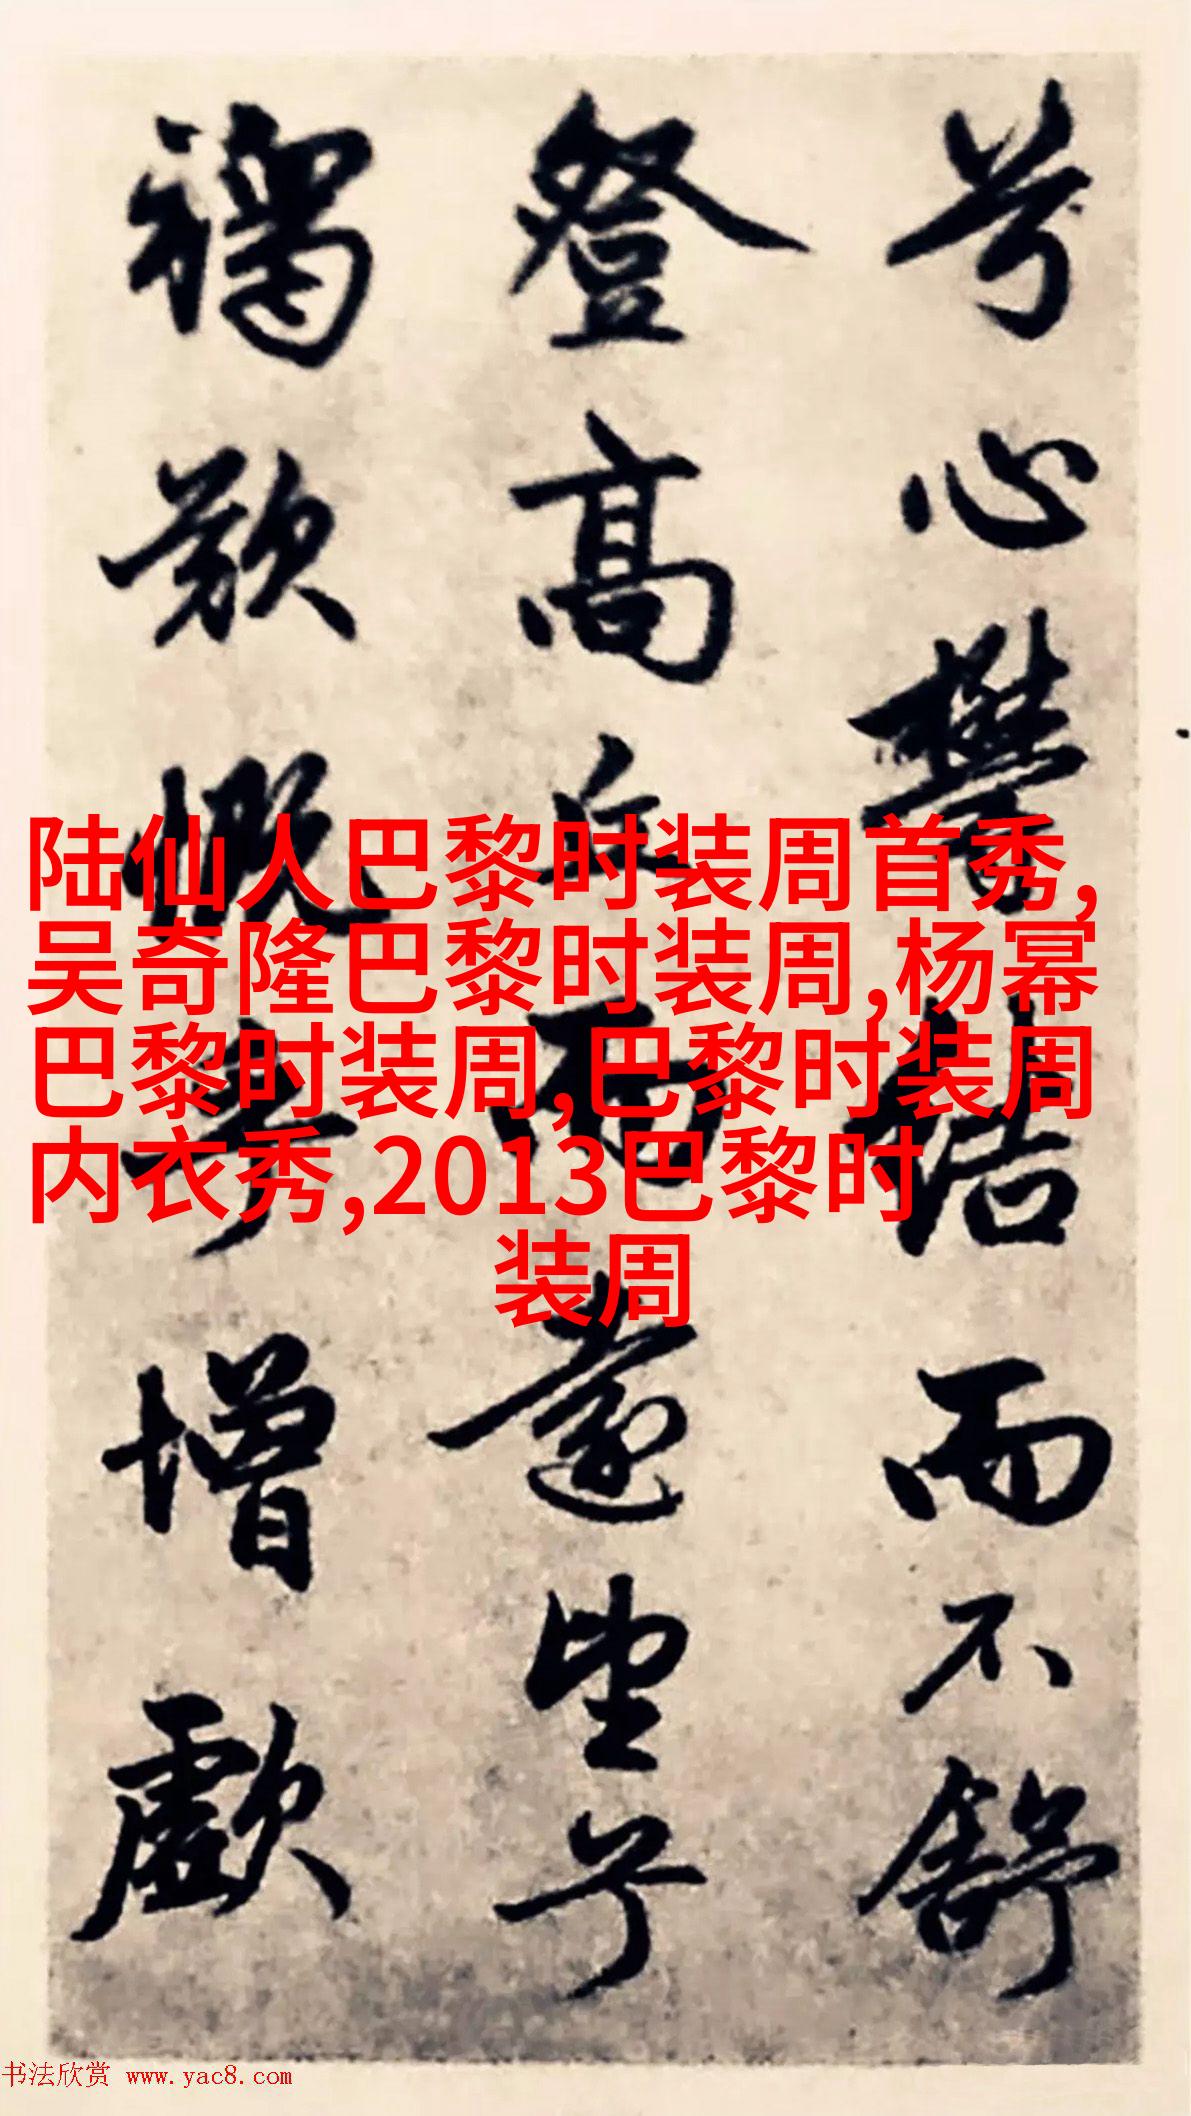 兮心鬱結而不舒
登高丘而遠望兮
歎慨兮增歔
陆仙人巴黎时装周首秀,
吴奇隆巴黎时装周,杨幂
巴黎时装周,巴黎时装周
内衣秀,2013巴黎时
装周
书法欣赏 www.yac8.com